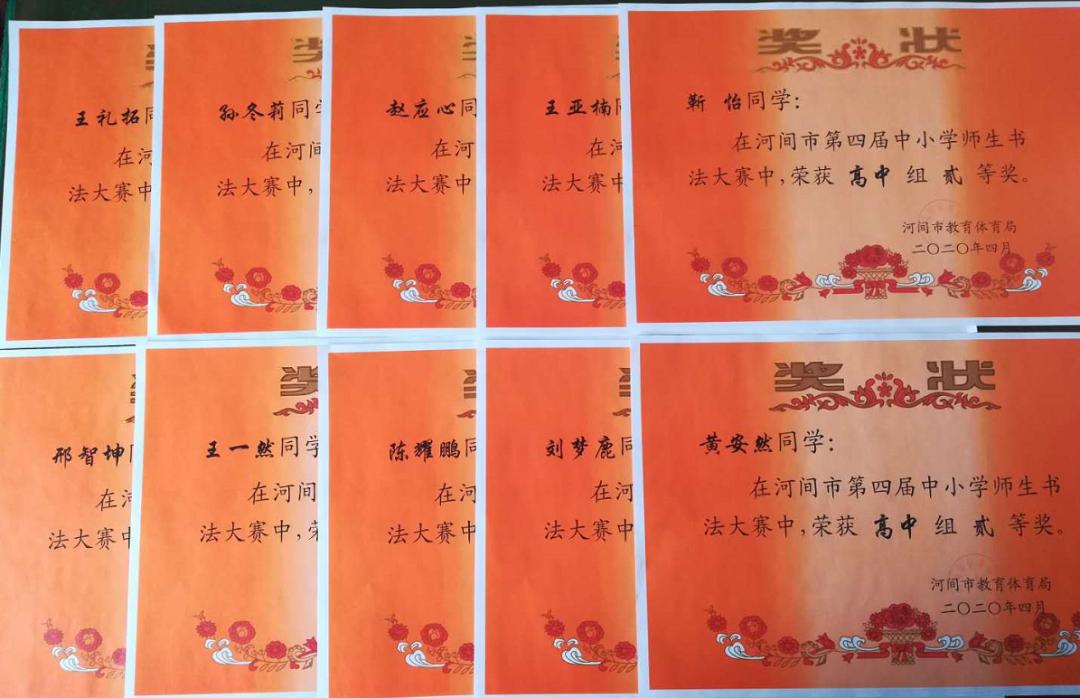 王礼拓同
在河
法大赛中
奖
孙冬莉同学
在河间
法大赛中,
赵应心同
在河
法大赛中
王亚楠同
在河
法大赛中
奖状
靳怡同学:
在河间市第四届中小学师生书
法大赛中,荣获 高中 组 贰 等奖。
河间市教育体育局
二〇二〇年四月
邢智坤同
在河
法大赛中
奖
王一然同学
在河间
法大赛中,荣
陈耀鹏同
在河
法大赛中
刘梦鹿同
在河
法大赛中
奖状
黄安然同学:
在河间市第四届中小学师生书
法大赛中,荣获 高中 组 贰 等奖。
河间市教育体育局
二〇二〇年四月